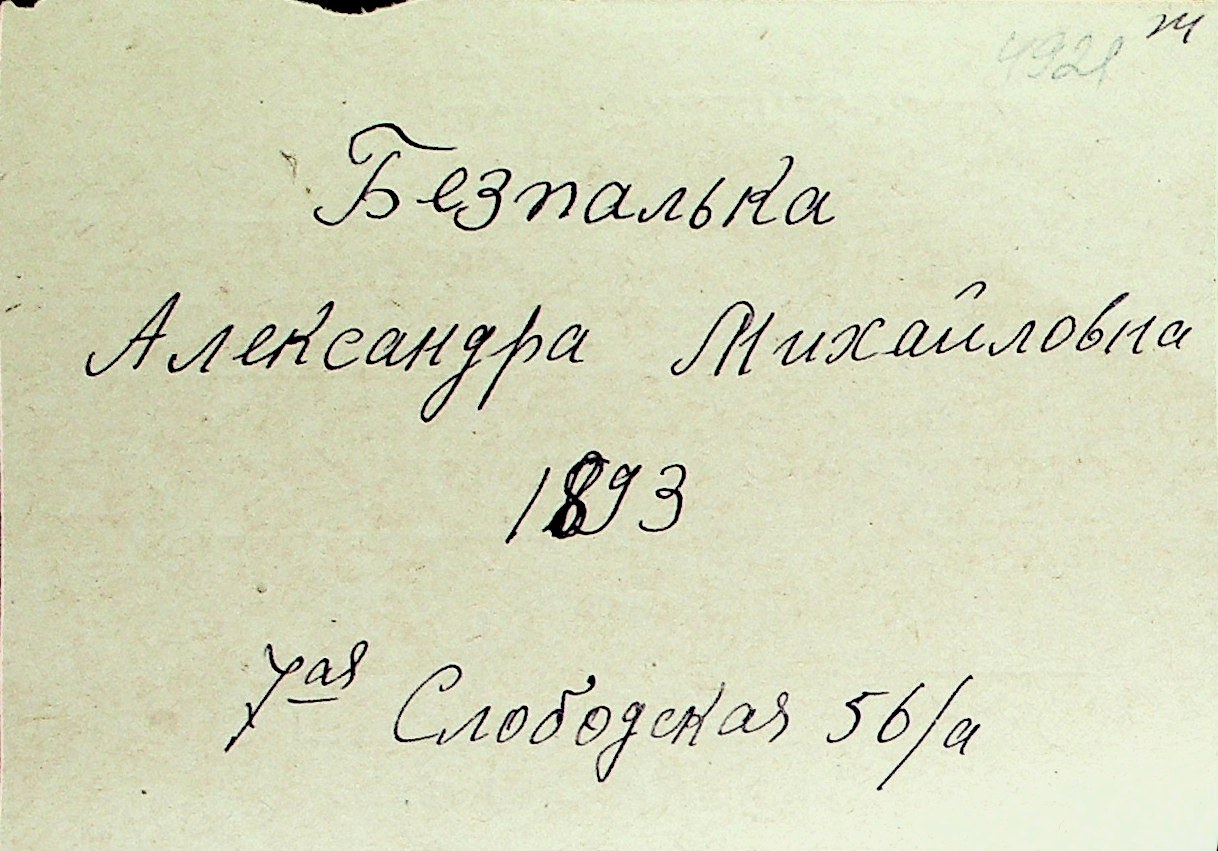 4921
Безпалька
Александра Михайловна
1893
7ая Слободская 56/а